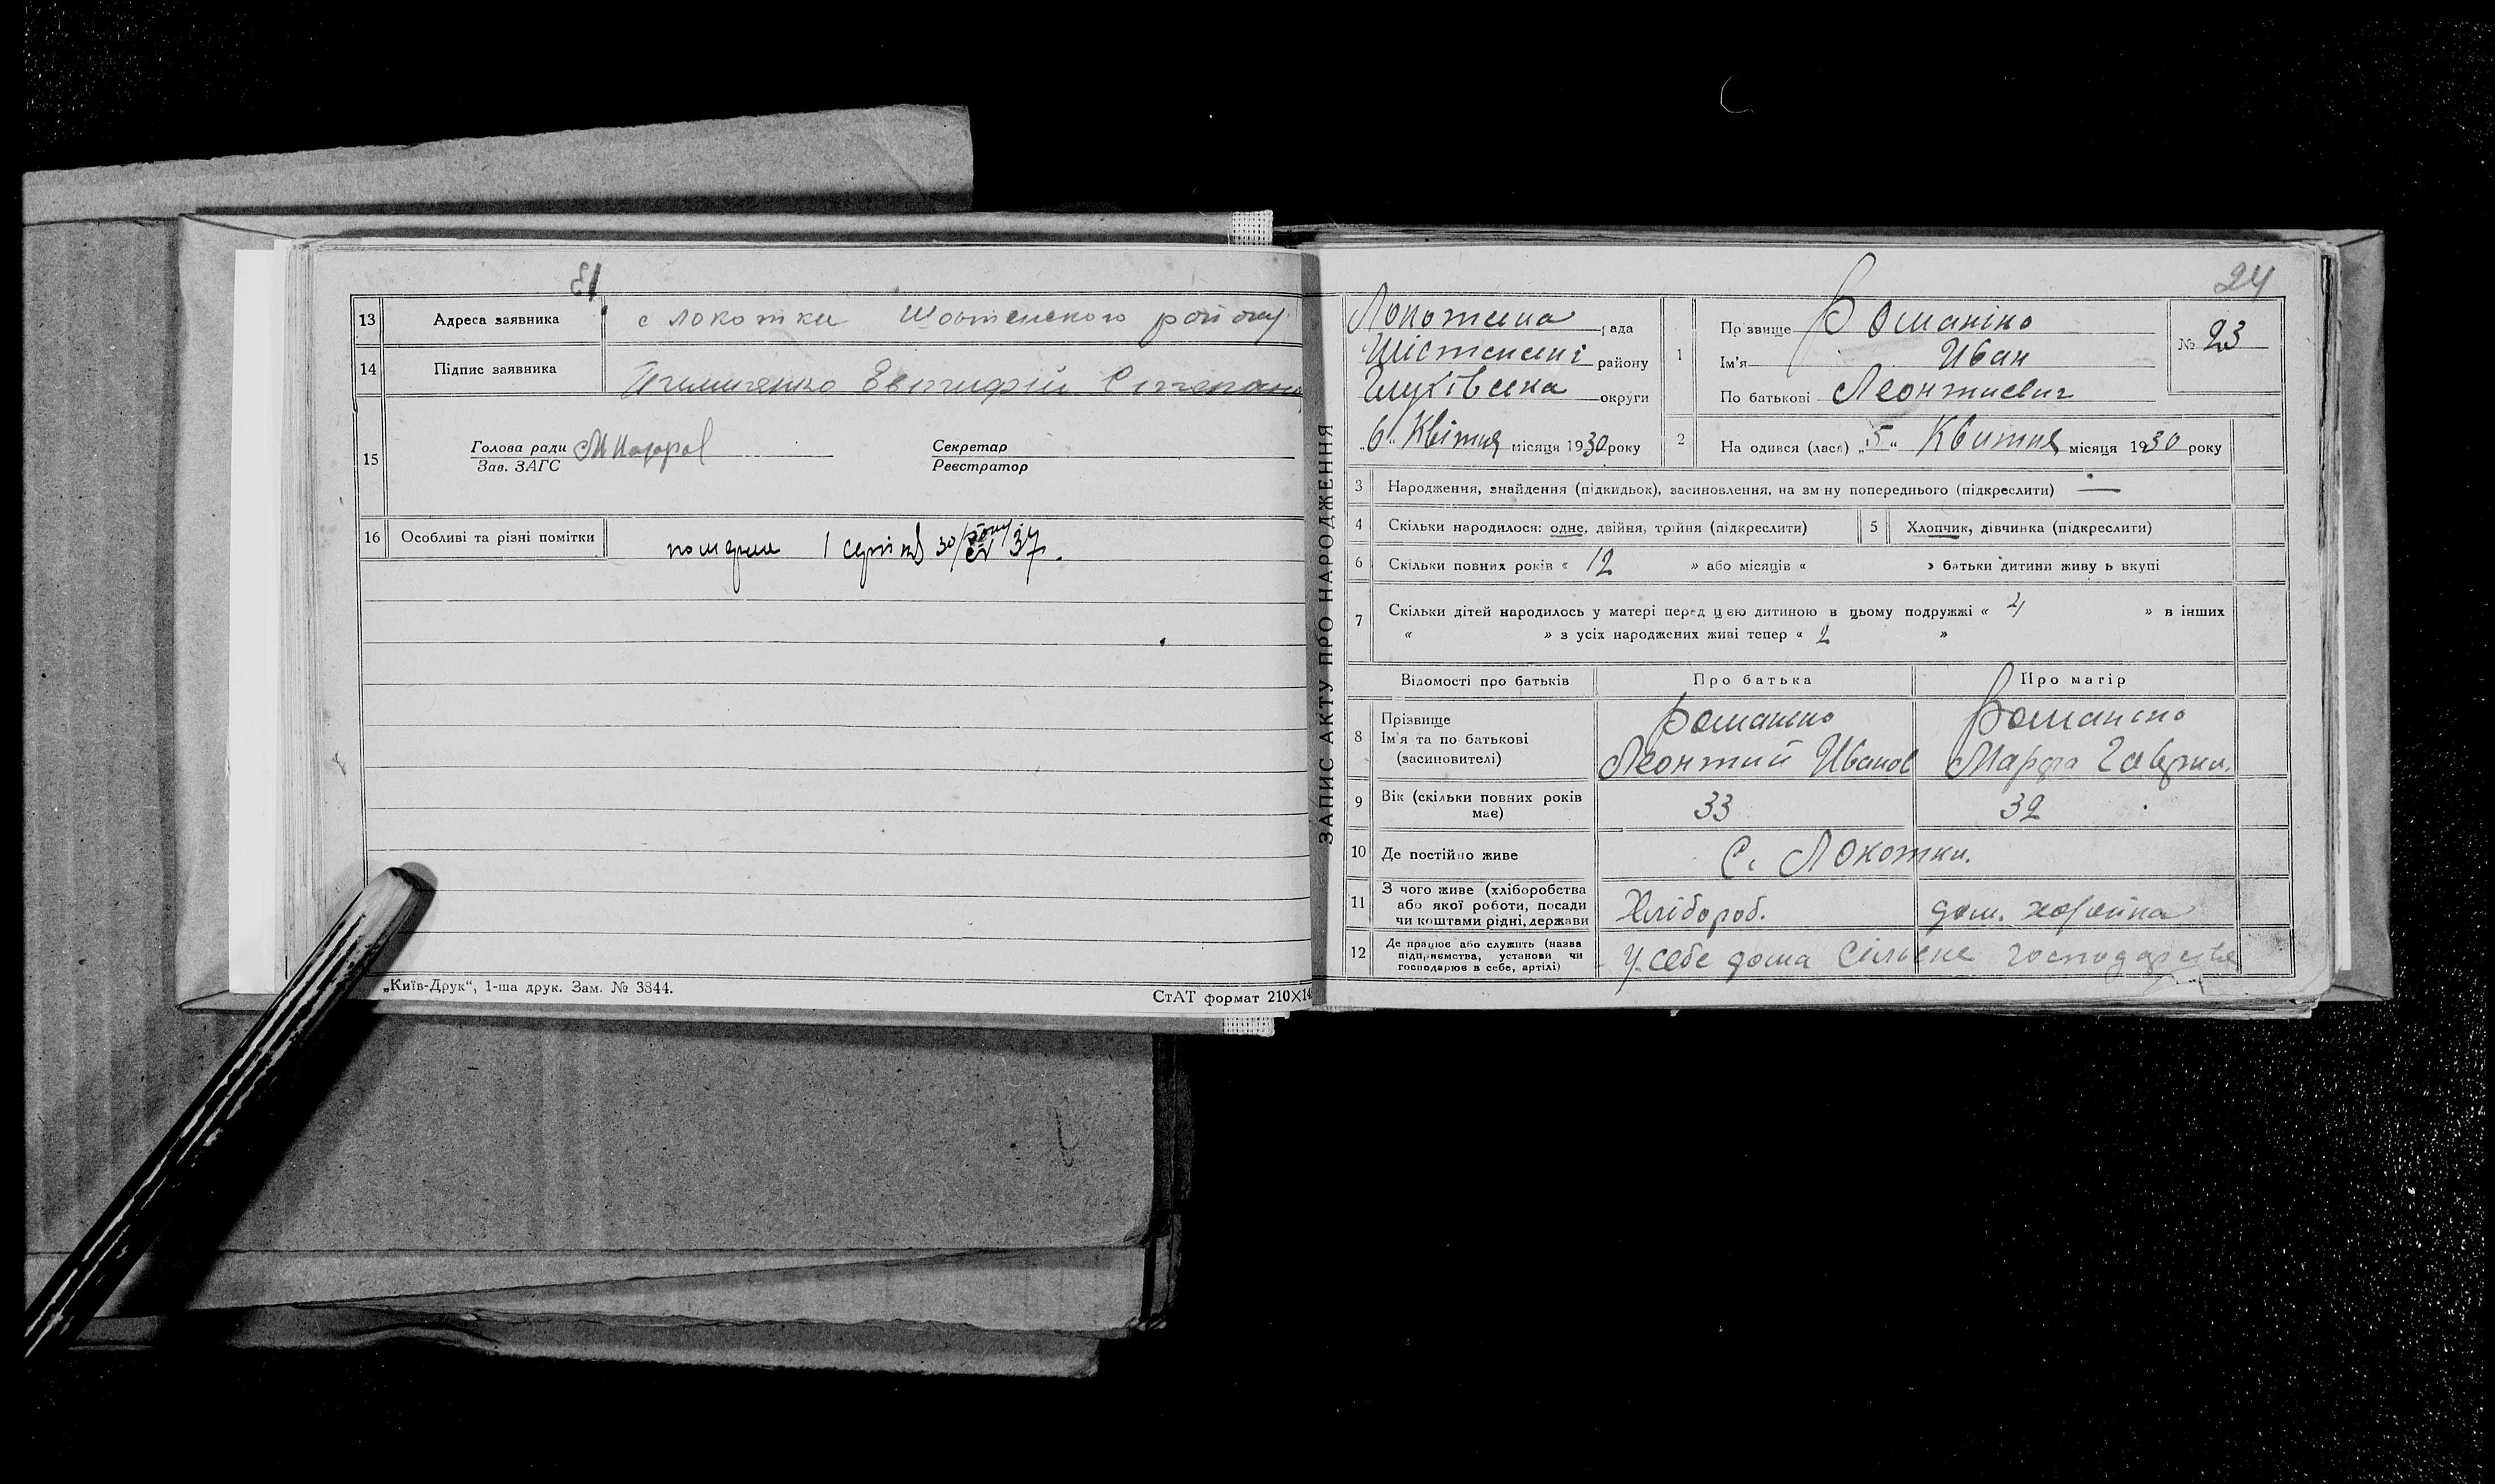 13 Адреса заявника с Локотки Шостенского району
14 Підпис заявника Степан
15 Голова ради Секретар
Зав. ЗАГС Реєстратор
16 Особливі та різні помітки помер 1 серпня 30 року № 37.
„Київ-Друк“, 1-ша друк. Зам. № 3844.
СтАТ формат 210×14
24
ЗАПИС АКТУ ПРО НАРОДЖЕННЯ
Локотська рада
Шістенскі району
Глухівська округи
„6“ Квітня місяця 1930 року
1 Прізвище Романіко
Ім'я Иван
По батькові Леонтиевич
№ 23
2 Народився (лася) „5“ Квитня місяця 1930 року
3 Народження, знайдення (підкидьок), засиновлення, на зміну попереднього (підкреслити) —
4 Скільки народилося: одне, двійня, трійня (підкреслити) 5 Хлопчик, дівчинка (підкреслити)
6 Скільки повних років « 12 » або місяців « » батьки дитини живуть вкупі
7 Скільки дітей народилось у матері перед цією дитиною в цьому подружжі « 4 » в інших
« » з усіх народжених живі тепер « 2 »
Відомості про батьків Про батька Про матір
8 Прізвище
Ім'я та по батькові
(засиновителі)
Романено Романено
Леонтий Иванов Марфа Гаврил.
9 Вік (скільки повних років має) 33 32
10 Де постійно живе С. Локотки.
11 З чого живе (хліборобства
або якої роботи, посади
чи коштами рідні, держави
Хлібороб. дом. хозяйка
12 Де працює або служить (назва
підприємства, установи чи
господарює в себе, артілі)
У себе дома Сільске господарстве